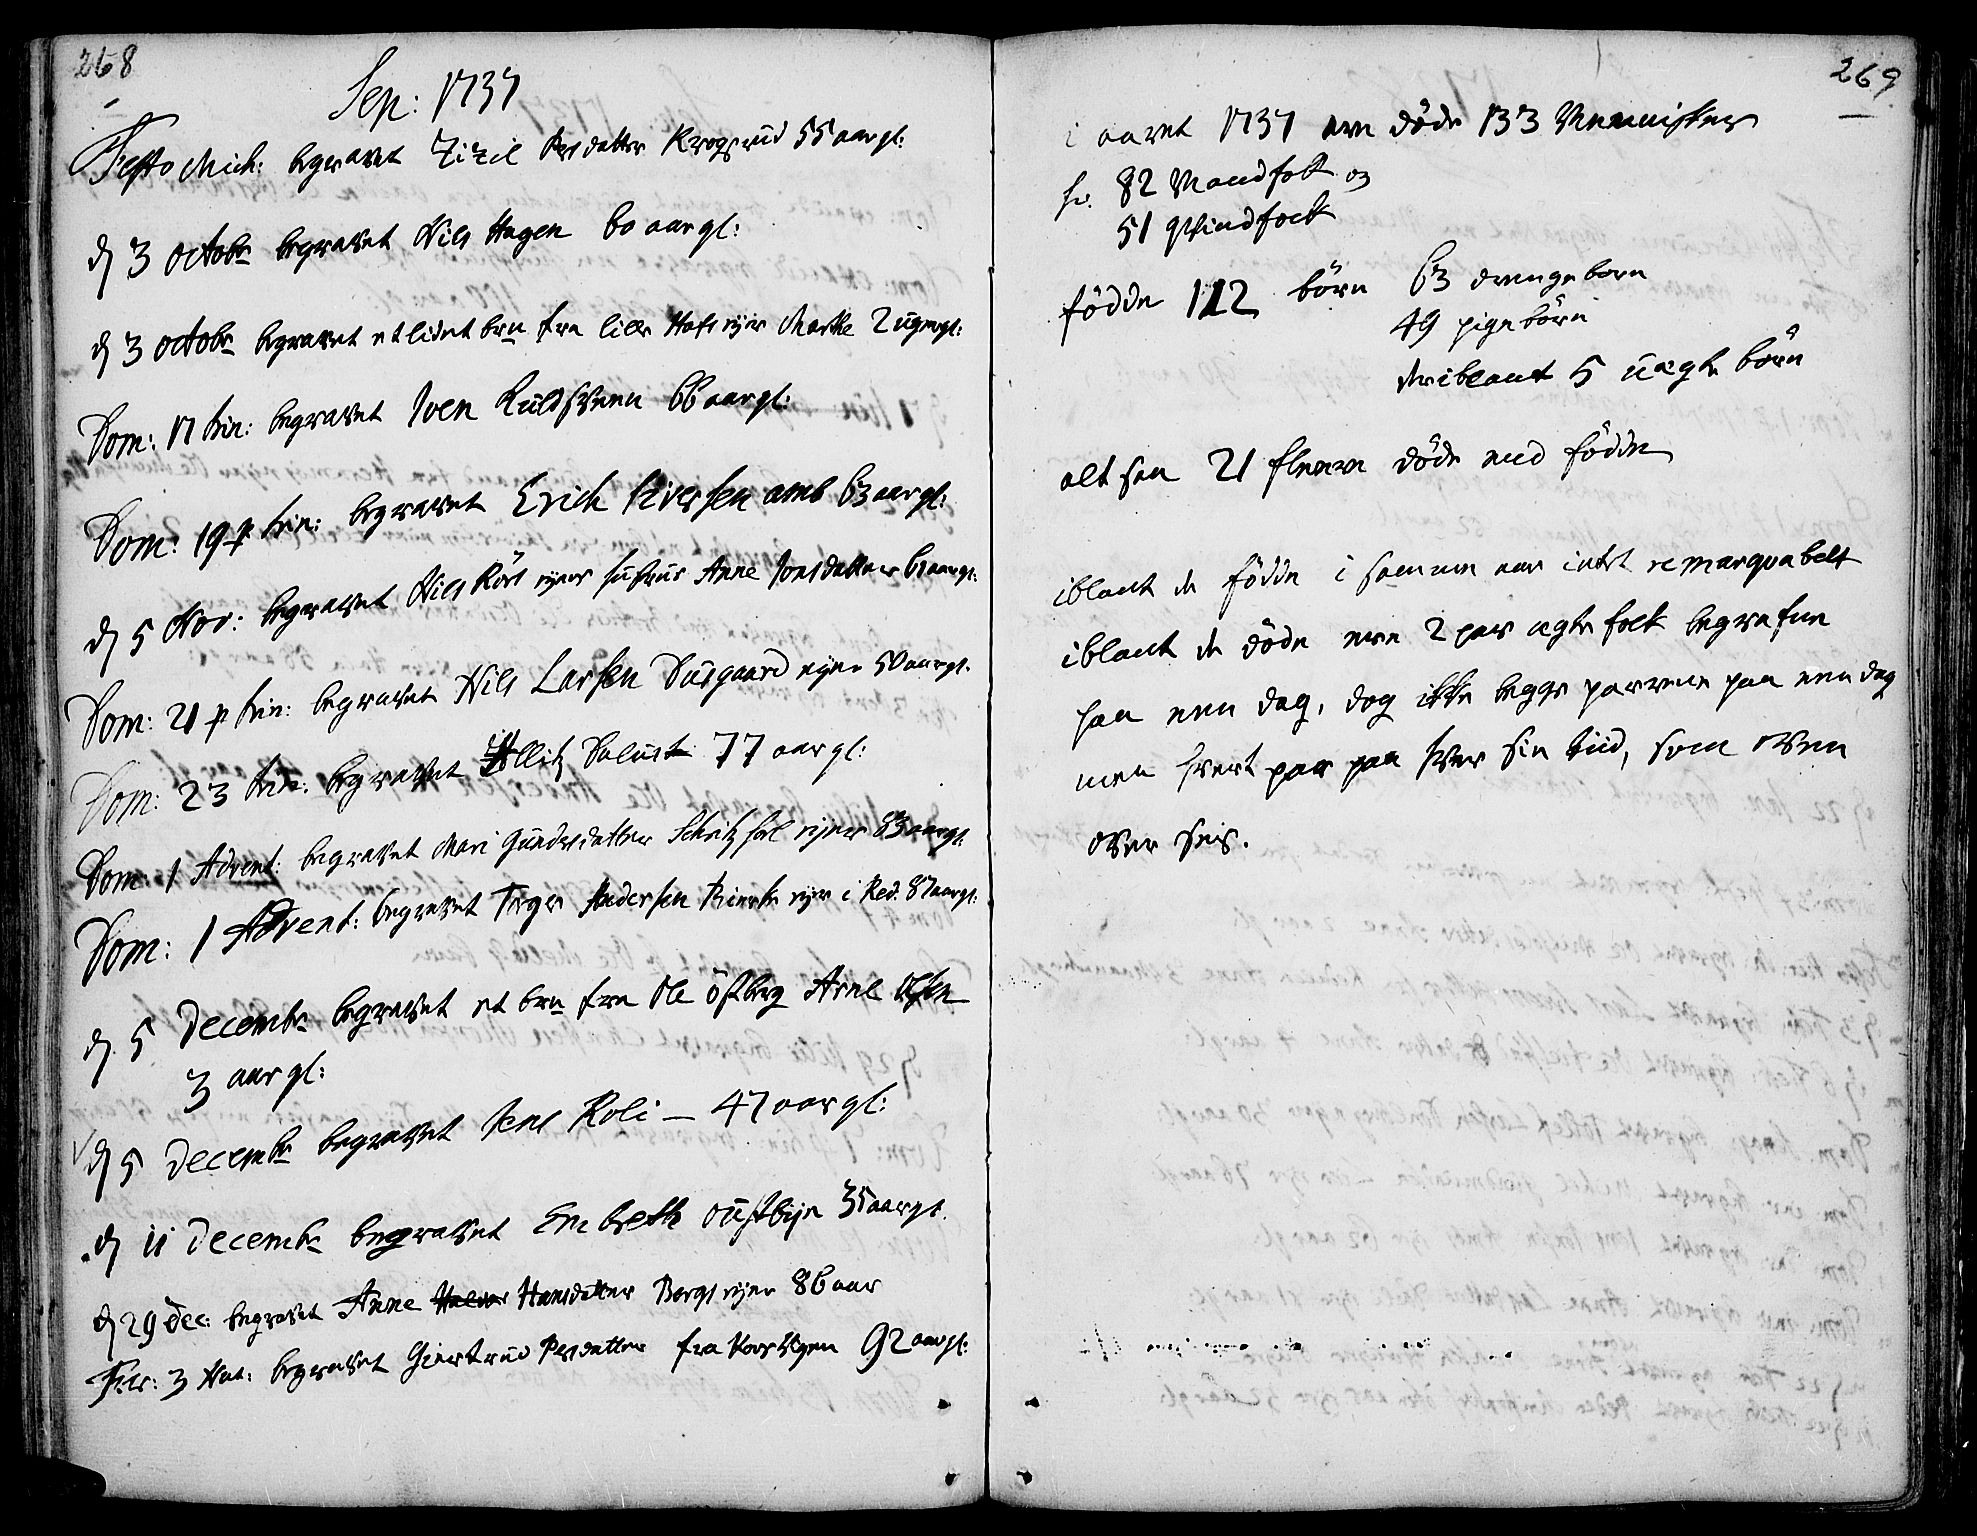 268
Sep: 1737
Festo Mich: begravet Zizil Persdatter Krogsrud 55 aar gl:
d 3 octobr begravet Nils Hagen 60 aar gl:
d 3 octobr begravet et lidet brn fra lille Hofs ejer Marthe 2 uger gl:
Dom: 17 trin: begravet Iven 66 aar gl:
Dom: 19 p trin: begravet Erich Iversen amb 63 aar gl:
d 5 Nov: begravet Nils ejers hustrue Anne Joensdatter aar gl:
Dom: 21 p trin: begravet Nils Larsen ejer 50 aar gl.
Dom: 23 trin: begravet 77 aar gl:
Dom: 1 Advent: begravet Mari Gundersdatter ejer 83 aar gl.
Dom: 1 Advent: begravet Andersen ejer i Red. 87 aar gl:
d. 5 Decembr begravet et brn fra Ole Östberg Arne Olsen
3 aar gl:
d 5 Decembr begravet Jens Roli — 47 aar gl:
d 11 Decembr begravet Embreth 35 aar gl.
d 29 Dec: begravet Anne Halvor Hansdatter Bergs ejer 86 aar
Fer: 3 Nat: begravet Giertrud Persdatter fra Korsvegen 92 aar gl:
269
i aaret 1737 ere döde 133 Mennisker
hr. 82 Mandfolk og
51 qvindfolk
födde 112 börn 63 drenge born
49 pige börn
der iblant 5 uægte börn
alt saa 21 fleere döde end födde
iblant de födde i samme aar intet remarquabelt
iblant de döde ere 2 par ægte folk begrafne
paa een dag, dog ikke begge parrene paa een dag
men hvert par paa hver sin tiid, som oven
over sees.